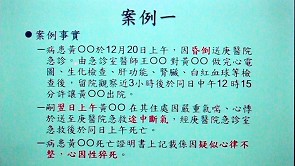 案例一
●案例事實
─病患黃○○於12月20日上午，因昏倒送庚醫院
急診。由急診室醫師王○○對黃○○做完心電
圖、生化檢查、肝功能、腎臟、白紅血球等檢
查後，留院觀察近3小時後於同日中午12時15
分許讓黃○○出院。
─嗣翌日上午黃○○在其住處因嚴重氣喘、心悸
於送至庚醫院急救途中斷氣，經庚醫院急診室
急救後於同日上午死亡。
─病患黃○○死亡證明書上記載係因疑似心律不
整，心因性猝死。